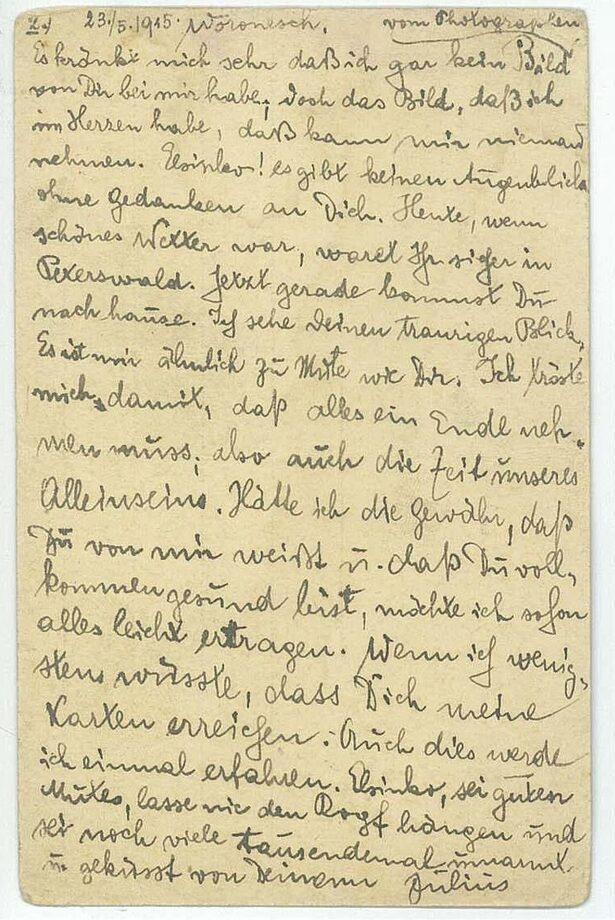 2.) 23./5.1915. Woronesch. vom Photographen
Es kränkt mich sehr daß ich gar kein Bild
von Dir bei mir habe, doch das Bild, daß ich
im Herzen habe, daß kann mir niemand
nehmen. Elsinko! es gibt keinen Augenblick
ohne Gedanken an Dich. Heute, wenn
schönes Wetter war, waret Ihr sicher in
Peterswald. Jetzt gerade kommst Du
nach hause. Ich sehe deinen traurigen Blick.
Es ist mir ähnlich zu Mute wie Dir. Ich tröste
mich damit, daß alles ein Ende neh-
men muss, also auch die Zeit unseres
Alleinseins. Hätte ich die Gewähr, daß
Du von mir weißt u. daß Du voll-
kommen gesund bist, möchte ich schon
alles leicht ertragen. Wenn ich wenig-
stens wüsste, dass Dich meine
Karten erreichen. Auch dies werde
ich einmal erfahren. Elsinko, sei guten
Mutes, lasse nie den Kopf hängen und
sei noch viele tausendemal umarmt
u. geküsst von Deinem Julius